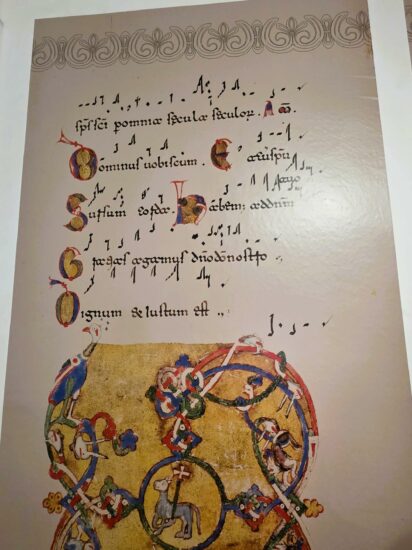 sps sci per omnia secula seculor. Am
Dominus uobiscum. Et cu spu
tuo
Sursum corda. Habem; ad dnum
Gratias agamus dno do nostro
Dignum & Iustum est